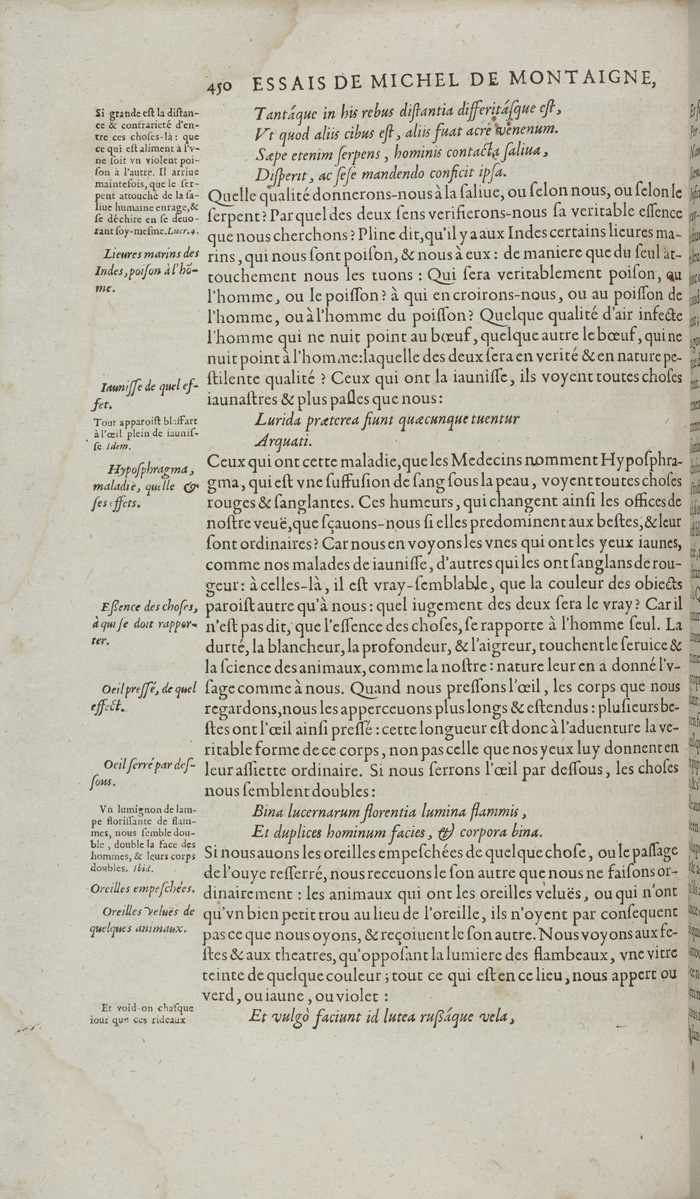 450 ESSAIS DE MICHEL DE MONTAIGNE,
Tantáque in his rebus distantia differitásque est,
Vt quod aliis cibus est, aliis fuat acre venenum.
Sæpe etenim serpens, hominis contacta saliua,
Disperit, ac sese mandendo conficit ipsa.
Si grande est la distan-
ce & contrarieté d'en-
tre ces choses-là : que
ce qui est aliment à l'v-
ne soit vn violent poi-
son à l'autre. Il arriue
maintefois, que le ser-
pent attouché de la sa-
liue humaine enrage, &
se déchire en se deuo-
rant soy-mesme. Lucr. 4.
Quelle qualité donnerons-nous à la saliue, ou selon nous, ou selon le
serpent? Par quel des deux sens verifierons-nous sa veritable essence
que nous cherchons? Pline dit, qu'il y a aux Indes certains lieures ma-
rins, qui nous sont poison, & nous à eux : de maniere que du seul at-
touchement nous les tuons : Qui sera veritablement poison, ou
l'homme, ou le poisson? à qui en croirons-nous, ou au poisson de
l'homme, ou à l'homme du poisson? Quelque qualité d'air infecte
l'homme qui ne nuit point au bœuf, quelque autre le bœuf, qui ne
nuit point à l'homme: laquelle des deux sera en verité & en nature pe-
stilente qualité ? Ceux qui ont la iaunisse, ils voyent toutes choses
iaunastres & plus pasles que nous:
Lieures marins des
Indes, poison à l'hō-
me.
Iaunisse de quel ef-
fet.
Lurida præterea fiunt quæcunque tuentur
Arquati.
Tout apparoist blaffart
à l'œil plein de iaunis-
se. Idem.
Ceux qui ont cette maladie, que les Medecins nomment Hyposphra-
gma, qui est vne suffusion de sang sous la peau, voyent toutes choses
rouges & sanglantes. Ces humeurs, qui changent ainsi les offices de
nostre veuë, que sçauons-nous si elles predominent aux bestes, & leur
sont ordinaires? Car nous en voyons les vnes qui ont les yeux iaunes,
comme nos malades de iaunisse, d'autres qui les ont sanglans de rou-
geur: à celles-là, il est vray-semblable, que la couleur des obiects
paroist autre qu'à nous : quel iugement des deux sera le vray? Car il
n'est pas dit, que l'essence des choses, se rapporte à l'homme seul. La
durté, la blancheur, la profondeur, & l'aigreur, touchent le seruice &
la science des animaux, comme la nostre : nature leur en a donné l'v-
sage comme à nous. Quand nous pressons l'œil, les corps que nous
regardons, nous les apperceuons plus longs & estendus : plusieurs be-
stes ont l'œil ainsi pressé : cette longueur est donc à l'aduenture la ve-
ritable forme de ce corps, non pas celle que nos yeux luy donnent en
leur assiette ordinaire. Si nous serrons l'œil par dessous, les choses
nous semblent doubles:
Hyposphragma,
maladie, quelle &
ses effets.
Essence des choses,
à qui se doit rappor-
ter.
Oeil pressé, de quel
effect.
Oeil serré par des-
sous.
Bina lucernarum florentia lumina flammis,
Et duplices hominum facies, & corpora bina.
Vn lumignon de lam-
pe florissante de flam-
mes, nous semble dou-
ble, double la face des
hommes, & leurs corps
doubles. Ibid.
Si nous auons les oreilles empeschées de quelque chose, ou le passage
de l'ouye resserré, nous receuons le son autre que nous ne faisons or-
dinairement : les animaux qui ont les oreilles veluës, ou qui n'ont
qu'vn bien petit trou au lieu de l'oreille, ils n'oyent par consequent
pas ce que nous oyons, & reçoiuent le son autre. Nous voyons aux fe-
stes & aux theatres, qu'opposant la lumiere des flambeaux, vne vitre
teinte de quelque couleur ; tout ce qui est en ce lieu, nous appert ou
verd, ou iaune, ou violet :
Oreilles empeschées.
Oreilles veluës de
quelques animaux.
Et vulgò faciunt id lutea russáque vela,
Et void-on chasque
iour que ces rideaux